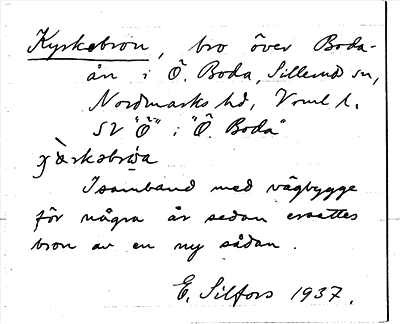 Kyrkebron, bro över Boda-
ån i Ö. Boda, Sillerud sn,
Nordmarks hd, Vrml l.
SV "Ö" i "Ö. Boda"
I samband med vägbygge
för några år sedan ersattes
bron av en ny sådan.
E. Silfors 1937.